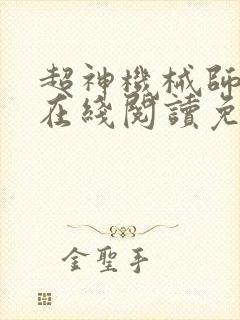 超神機械師
在綫閱讀免
金聖手